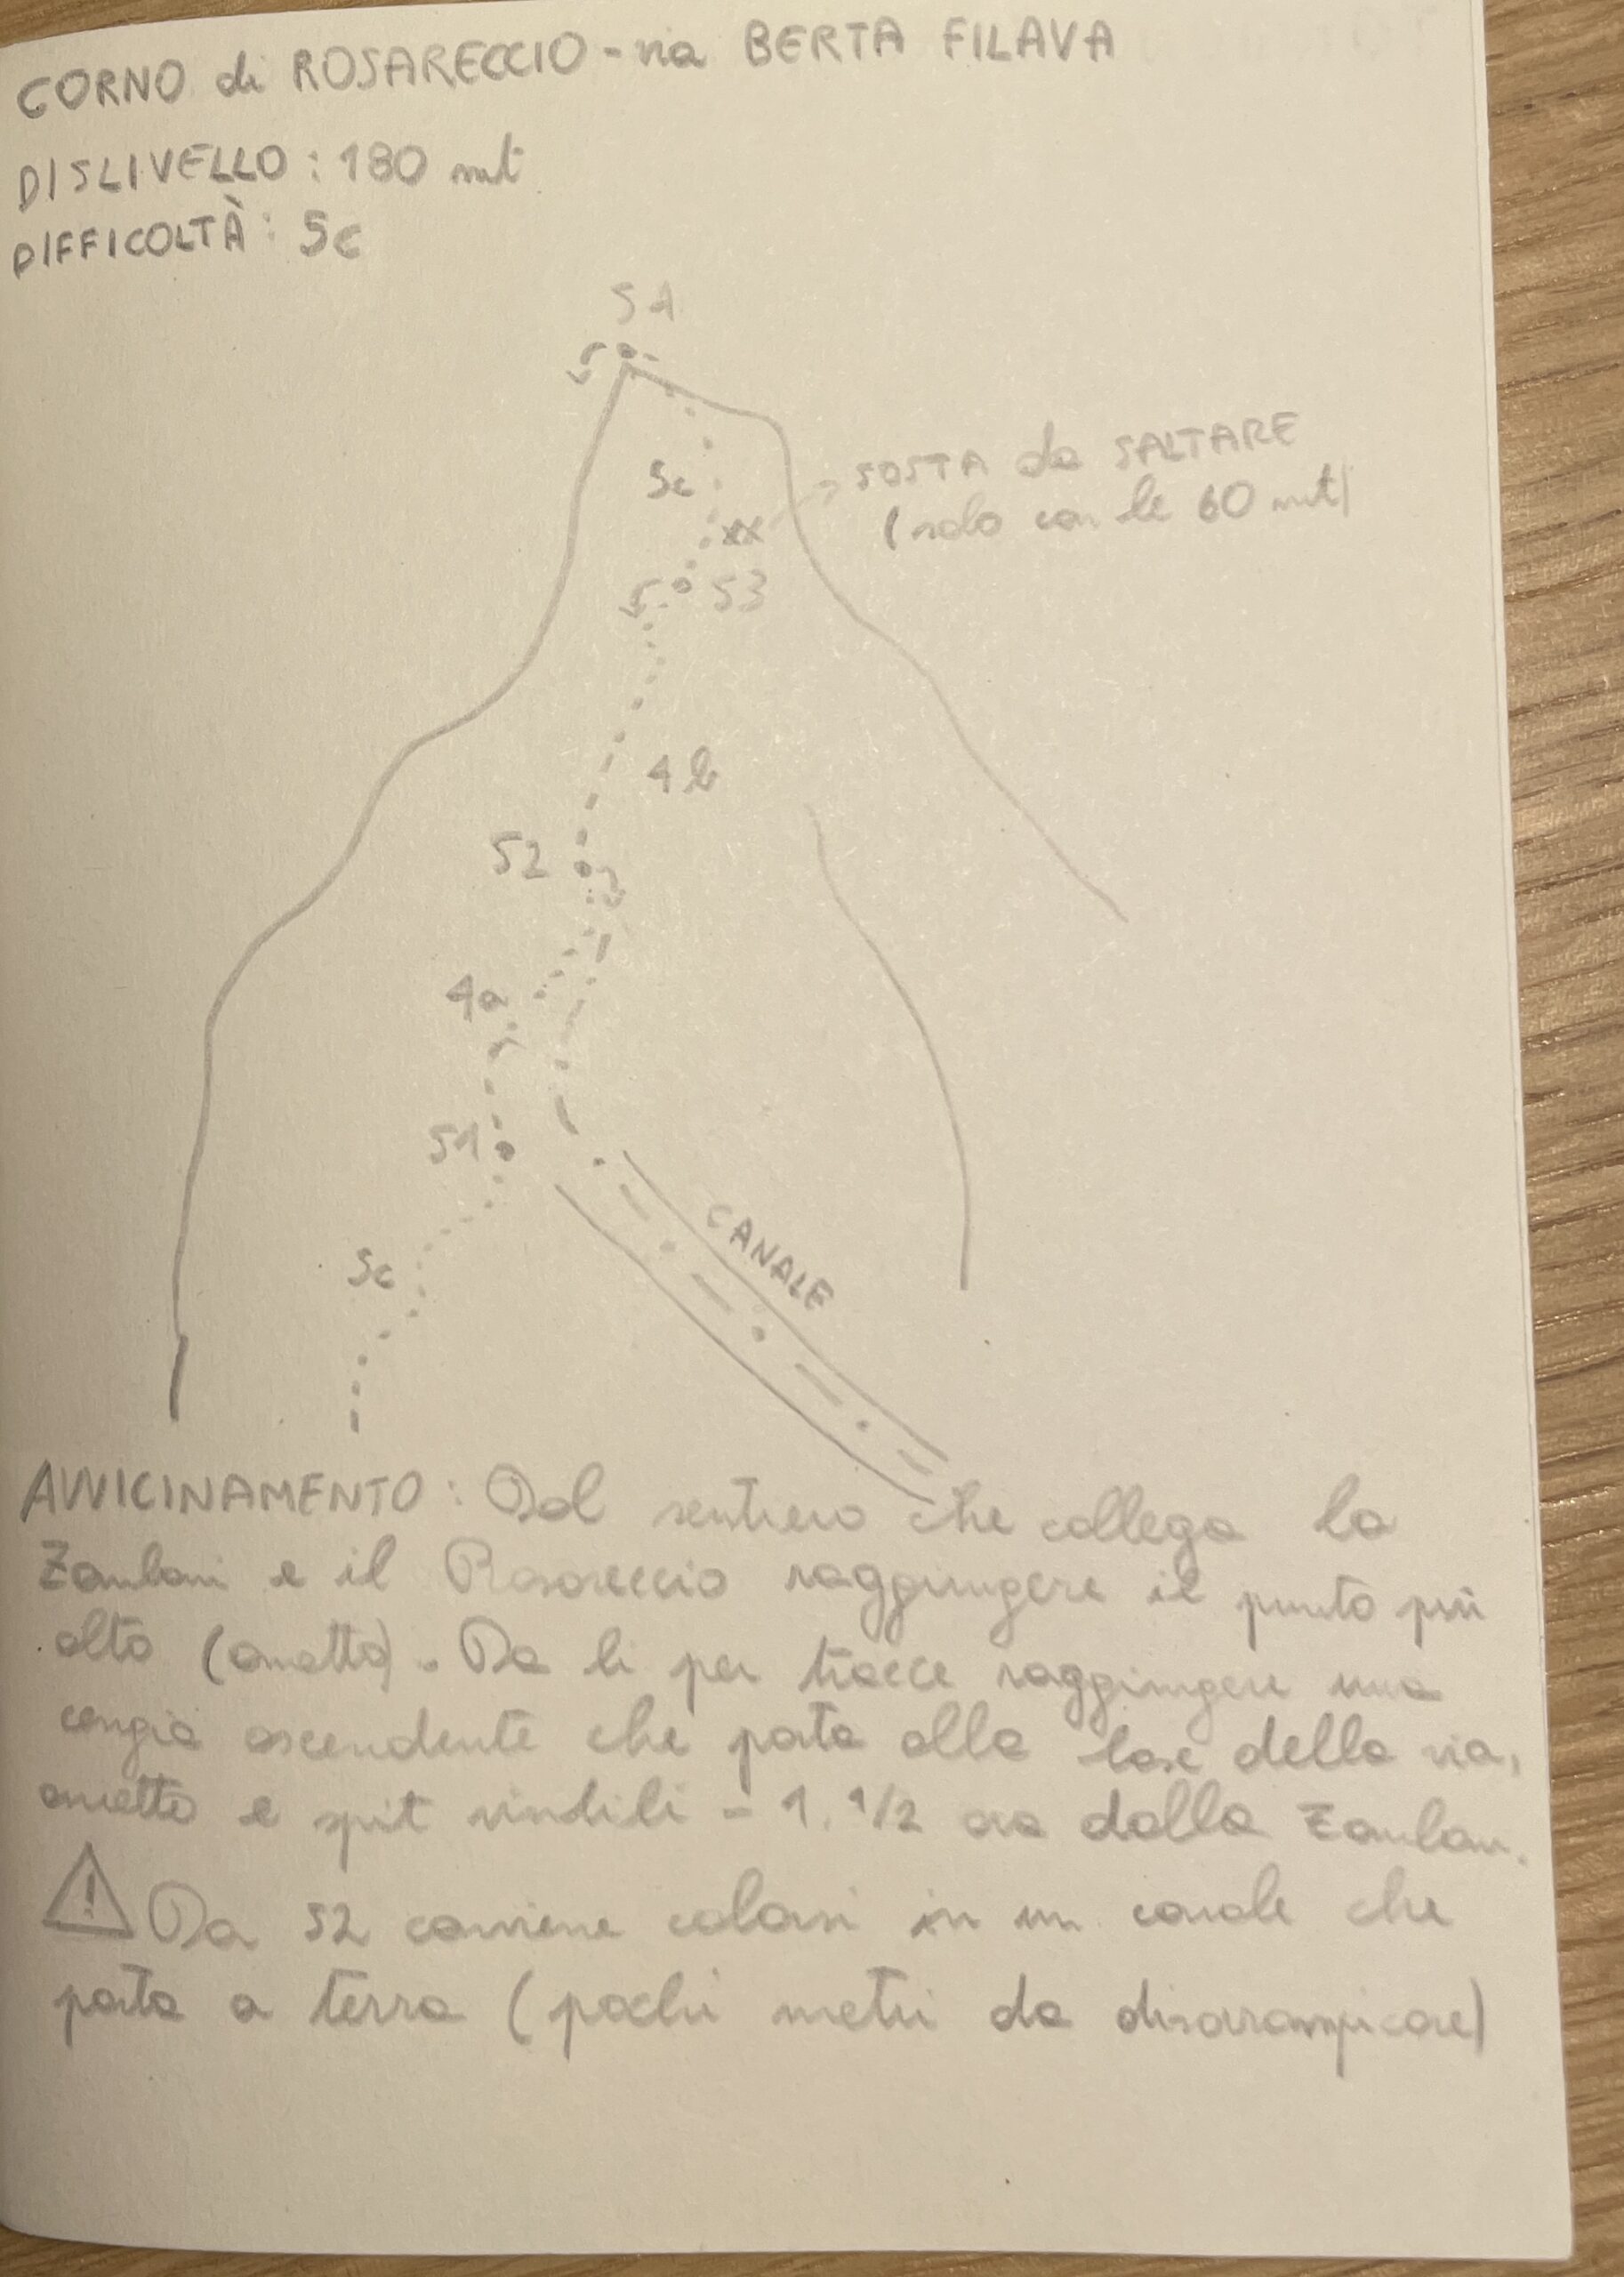 CORNO di ROSARECCIO - via BERTA FILAVA
DISLIVELLO : 180 mt
DIFFICOLTÀ : 5c
S4
5c
SOSTA da SALTARE
(solo con le 60 mt)
xx
S3
4b
S2
4a
S1
CANALE
5c
AVVICINAMENTO : Dal sentiero che collega la
Zamboni e il Rosareccio raggiungere il punto più
alto (ometto). Da li per tracce raggiungere una
cengia ascendente che porta alla base della via,
ometto e spit visibili - 1. 1/2 ora dalla Zamboni.
! Da S2 conviene calarsi in un canale che
porta a terra (pochi metri da disarrampicare)